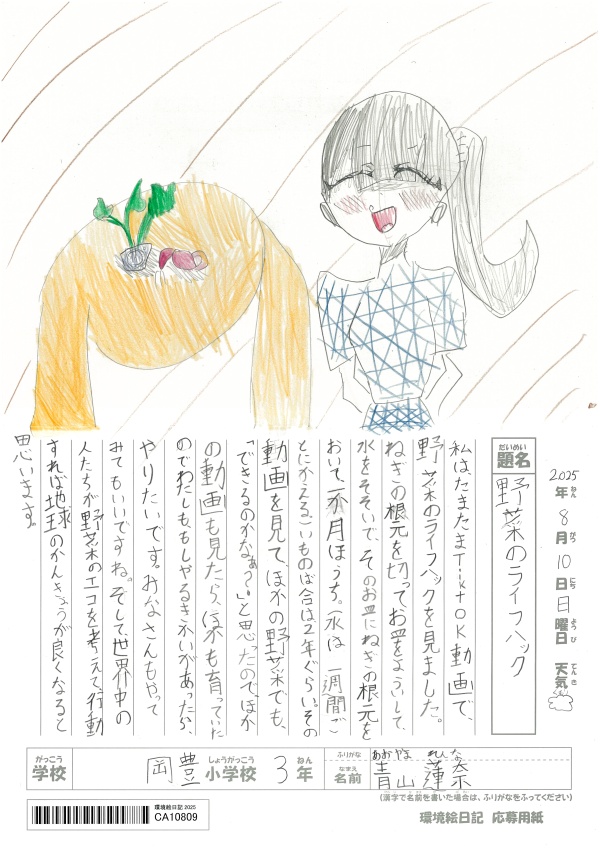 2025年 8月 10日 日曜日 天気
ねん がつ にち ようび てんき
だいめい
題名
野菜のライフハック
私は、たまたまTiktok動画で、
野菜のライフハックを見ました。
ねぎの根元を切ってお皿をよういして、
水をそそいで、そのお皿にねぎの根元を
おいて、一か月ほうち。(水は、一週間ご
とにかえる。)いものば合は2年ぐらい。その
動画を見て、ほかの野菜でも、
「できるのかなぁ〜?」と思ったので、ほか
の動画も見たら、ほかも育っていた
のでわたしももしやるきかいがあったら、
やりたいです。みなさんもやって
みてもいいですね。そして、世界中の
人たちが野菜のエコを考えて、行動
すれば地球のかんきょうが良くなると
思います。
がっこう しょうがっこう ねん ふりがな あおやま れいな
学校 岡豊小学校 3年 なまえ 名前 青山 蓮奈
(漢字で名前を書いた場合は、ふりがなをふってください)
環境絵日記 2025
CA10809
環境絵日記 応募用紙